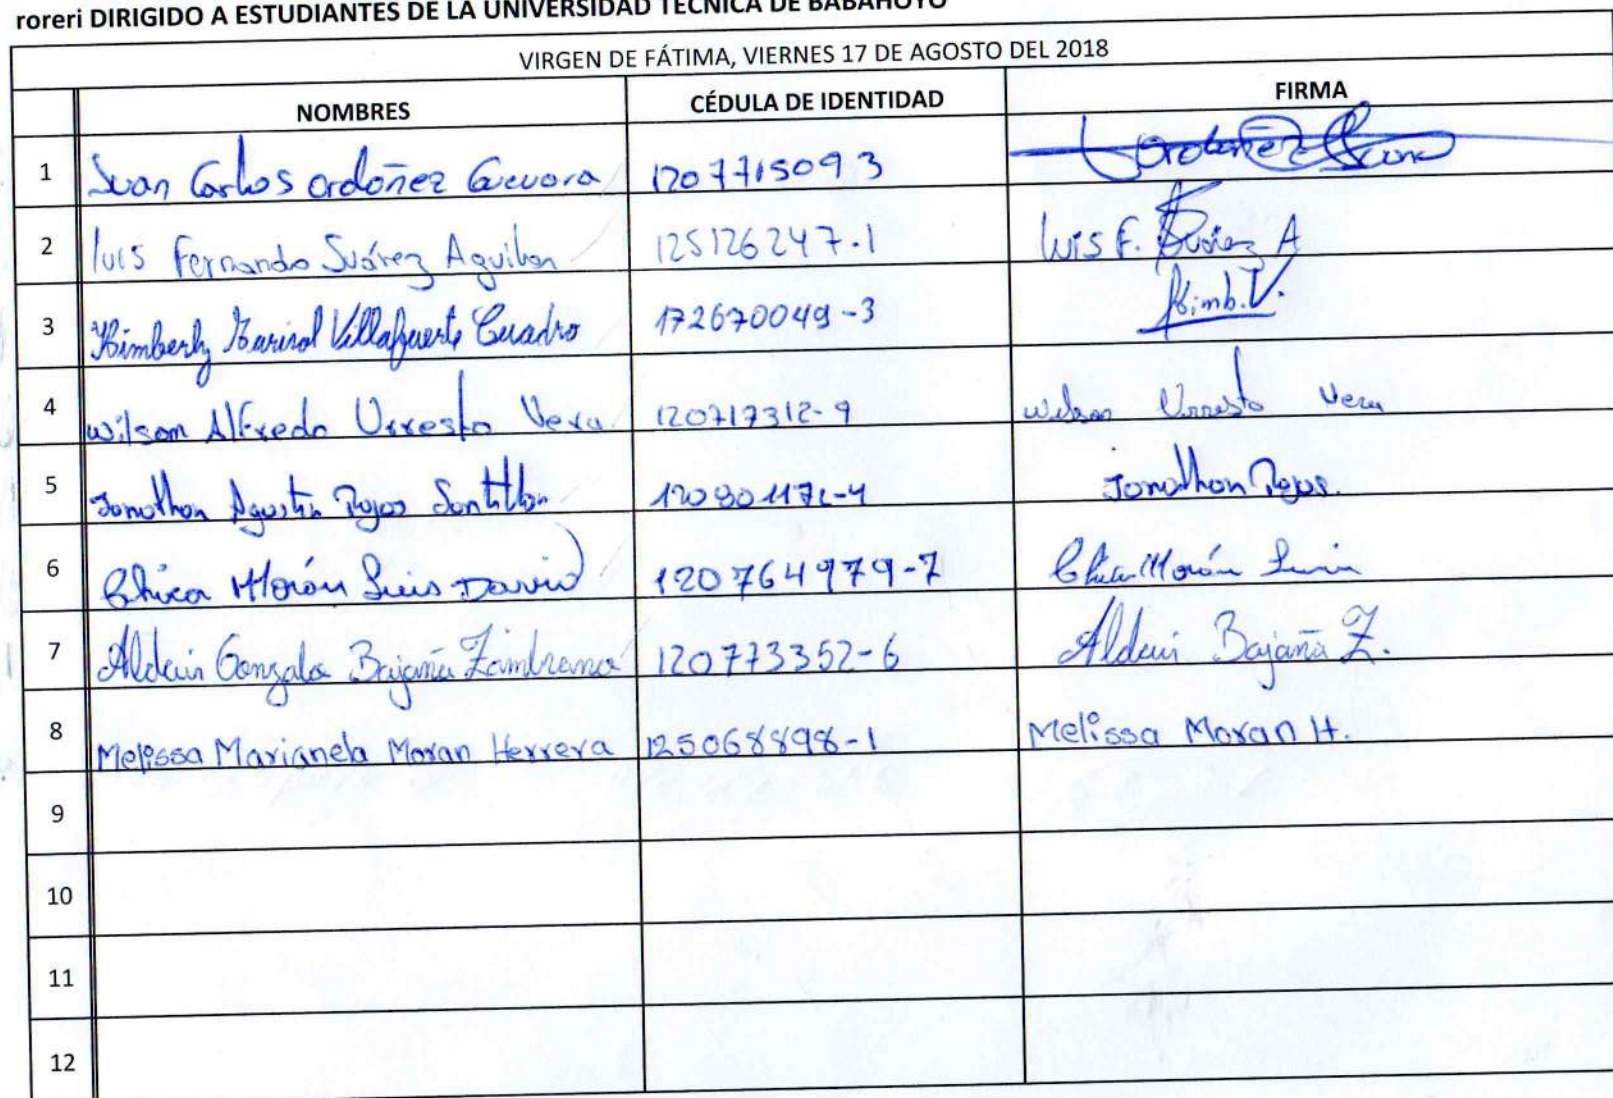 roreri DIRIGIDO A ESTUDIANTES DE LA UNIVERSIDAD TÉCNICA DE BABAHOYO
VIRGEN DE FÁTIMA, VIERNES 17 DE AGOSTO DEL 2018
NOMBRES CÉDULA DE IDENTIDAD FIRMA
1 Juan Carlos Ordóñez Guevara 1207715093 Ordoñez
2 Luis Fernando Suárez Aguilar 125126247-1 Luis F. Suárez A
3 Kimberly Marisol Villafuerte Cuadro 172670049-3 Kimb. V.
4 Wilson Alfredo Urresto Vera 120717312-9 Wilson Urresto Vera
5 Jonathon Agustin Rojas Santillan Jonathon Rojas.
6 Chica Morán Luis David 120764979-7 Chica Morán Luis
7 Aldair Gonzalo Bajaña Zambrano 120773352-6 Aldair Bajaña Z.
8 Melissa Marianela Moran Herrera 125068898-1 Melissa Moran H.
9
10
11
12